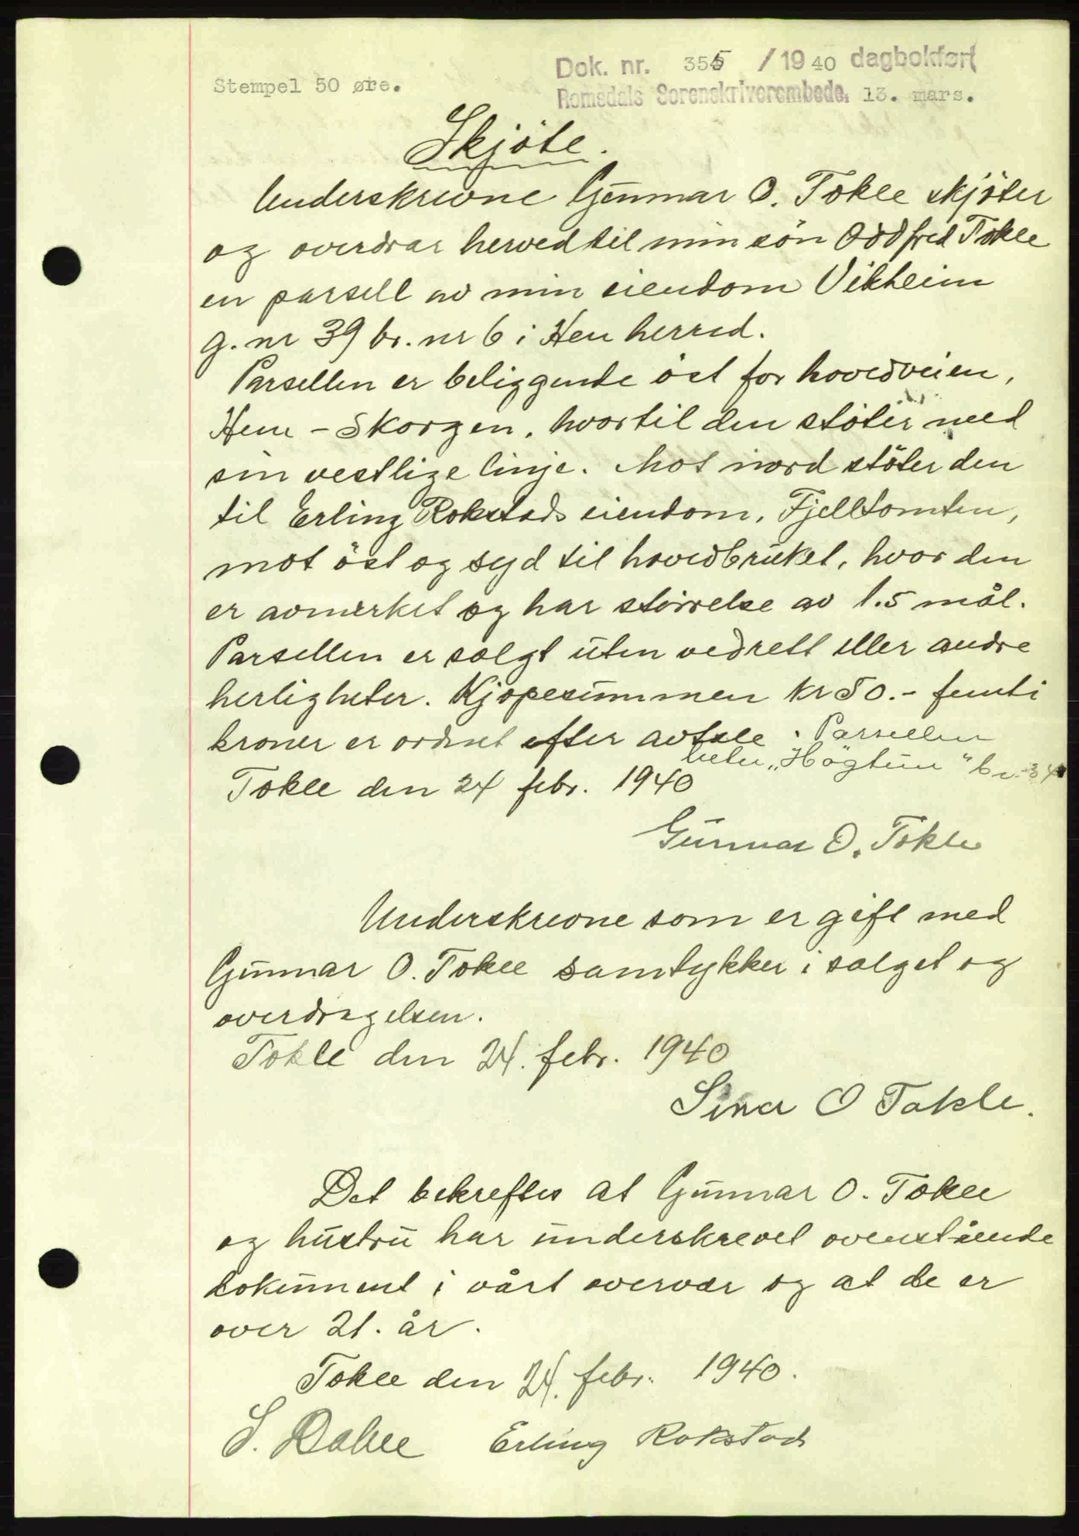 Stempel 50 øre.
Dok. nr. 355 / 1940 dagbokført
Romsdals Sorenskriverembede. 13. mars.
Skjöte.
Underskrevne Gunnar O. Tokle skjöter
og overdrar herved til min sön Oddfred Tokle
en parsell av min eiendom Vikheim
g. nr 39 br. nr 6 i Hen herred.
Parsellen er beliggende öst for hovedveien,
Hen - Skorgen, hvortil den stöter med
sin vestlige linje. Mot nord stöter den
til Erling Rokstads eiendom, Fjelltomten,
mot öst og syd til hovedbruket, hvor den
er avmerket og har störrelse av 1.5 mål.
Parsellen er solgt uten vedrett eller andre
herligheter. Kjöpesummen kr 50.- femti
kroner er ordnet efter avtale. Parsellen
heter "Högtun" br. 34
Tokle den 24 febr. 1940
Gunnar O. Tokle
Underskrevne som er gift med
Gunnar O. Tokle samtykker i salget og
overdragelsen.
Tokle den 24. febr. 1940
Sina O Tokle.
Det bekreftes at Gunnar O. Tokle
og hustru har underskrevet ovenstående
dokument i vårt overvær og at de er
over 21. år.
Tokle den 24. febr. 1940.
S. Erling Rokstad